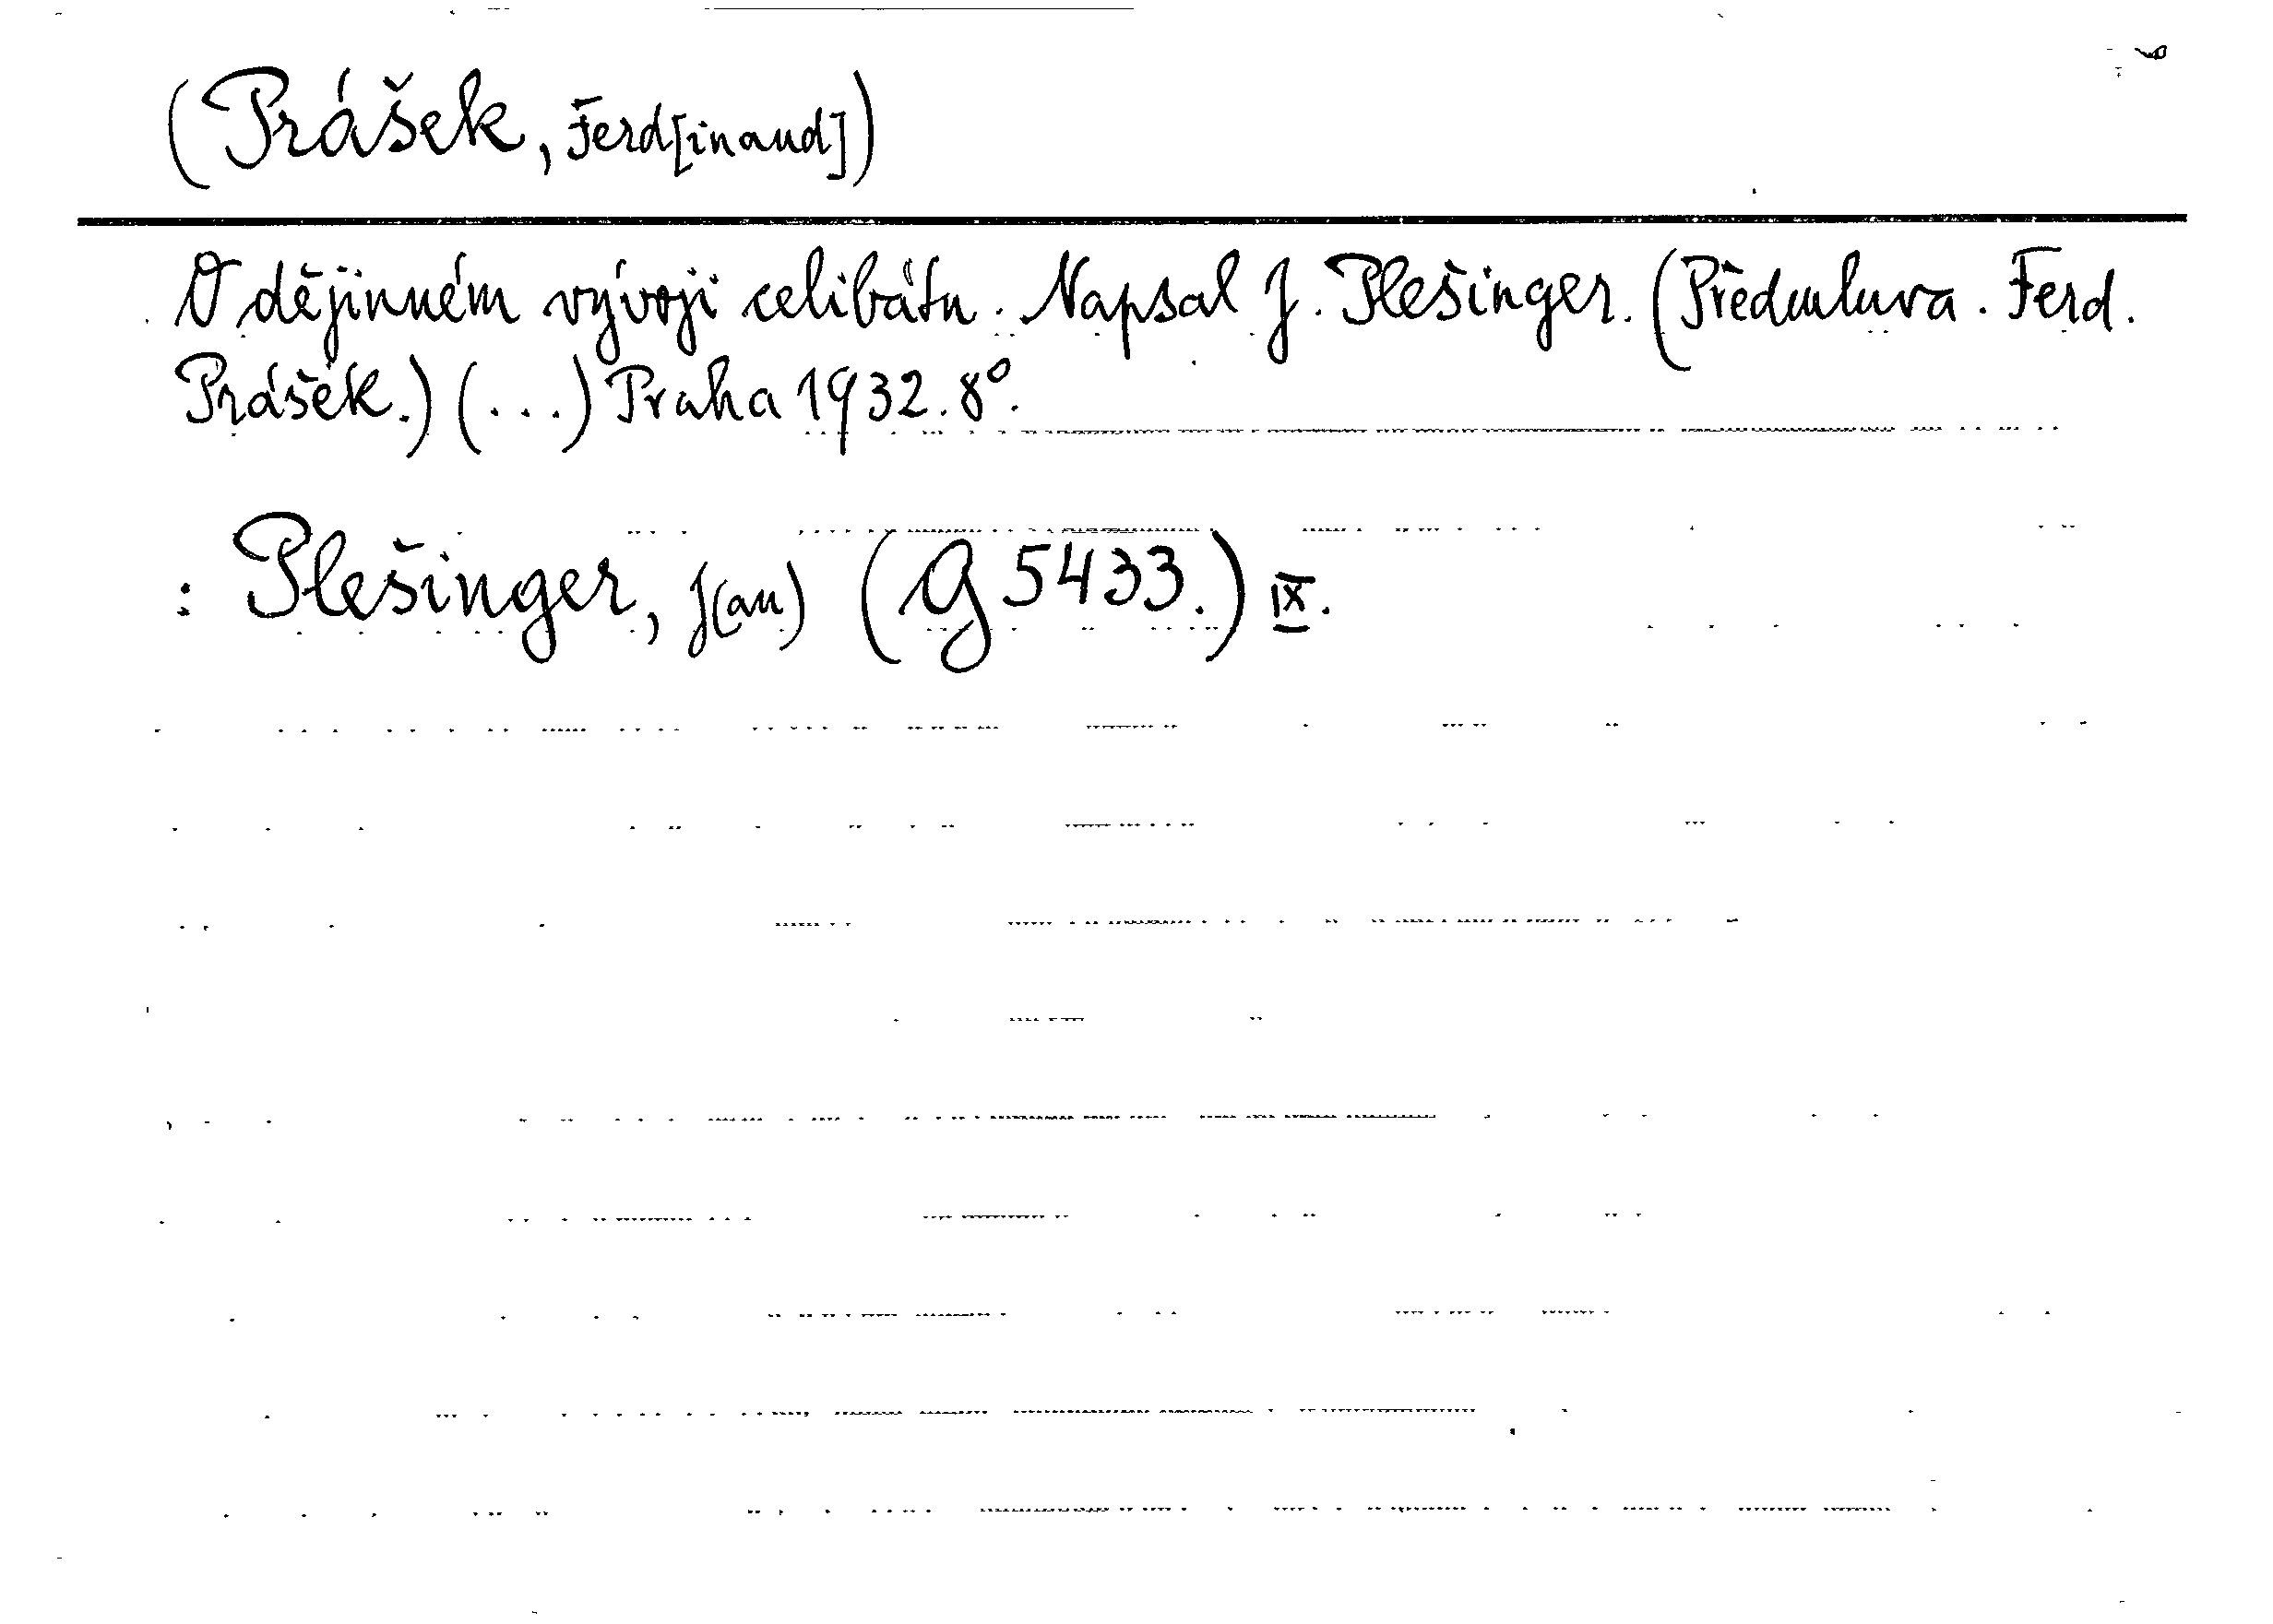 (Prášek, Ferd[inand])
O dějinném vývoji celibátu. Napsal J. Plešinger. (Předmluva. Ferd.
Prášek.) (...) Praha 1932. 8°.
: Plešinger, J(an) (G 5433.) IX.